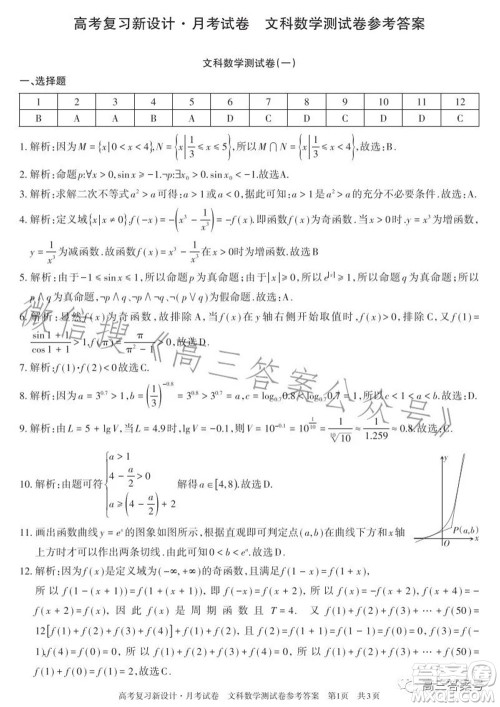 高考复习新设计·月考试卷 文科数学测试卷参考答案
文科数学测试卷(一)
一、选择题
1 2 3 4 5 6 7 8 9 10 11 12
B A A A A D B D C D D C
1. 解析:因为M={x|0<x<4},N={x|1/3≤x≤5},所以M∩N={x|1/3≤x<4},故选:B.
2. 解析:命题p:∀x>0,sinx≥-1.¬p:∃x₀>0,sinx₀<-1.故选A.
3. 解析:求解二次不等式a²>a可得:a>1或a<0,据此可知:a>1是a²>a的充分不必要条件.故选:A.
4. 解析:定义域{x|x≠0},f(-x)=-(x³-1/x³)=-f(x).即函数f(x)为奇函数.当x>0时,y=x³为增函数,
y=1/x³为减函数.故函数f(x)=x³-1/x³在x>0时为增函数.故选A.
5. 解析:由于-1≤sinx≤1,所以命题p为真命题;由于|x|≥0,所以e^|x|≥1,所以命题q为真命题;
6. 解析:显然f(x)为奇函数,故排除A,当f(x)在y轴右侧开始取值时,f(x)>0,排除C,又f(1)=
(sin1+1)/(cos1+1)>1,f(π)=π/(π²-1)<1,故选:D.
7. 解析:f(1)·f(2)<0故选B.
8. 解析:因为a=3^0.7>1,b=(1/3)^-0.8=3^0.8>3^0.7=a,c=log₀.₇0.8<log₀.₇0.7=1,所以c<1<a<b.故选:D.
9. 解析:由L=5+lgV,当L=4.9时,lgV=-0.1,则V=10^-0.1=10^(-1/10)=1/¹⁰√10≈1/1.259≈0.8.故选:C.
10. 解析:由题可得{a>1 4-a/2>0 4-a/2+2≤a 解得a∈[4,8).故选D.
11. 画出函数曲线y=eˣ的图象如图所示,根据直观即可判定点(a,b)在曲线下方和x轴
上方时才可以作出两条切线.由图可知0<b<eᵃ.故选D.
P(a,b)
12. 解析:因为f(x)是定义域为(-∞,+∞)的奇函数,且满足f(1-x)=f(1+x),
所以f(1-(x+1))=f(1+(x+1)),即f(-x)=f(x+2),所以f(x)=-f(x+2),f(x+4)=-
f(x+2)=f(x),因此f(x)是周期函数且T=4.又f(1)+f(2)+f(3)+…+f(50)=
f(50)=f(1)=2.故选C.
高考复习新设计·月考试卷 文科数学测试卷参考答案 第1页 共3页
微信搜《高三答案公众号》
高三答案号